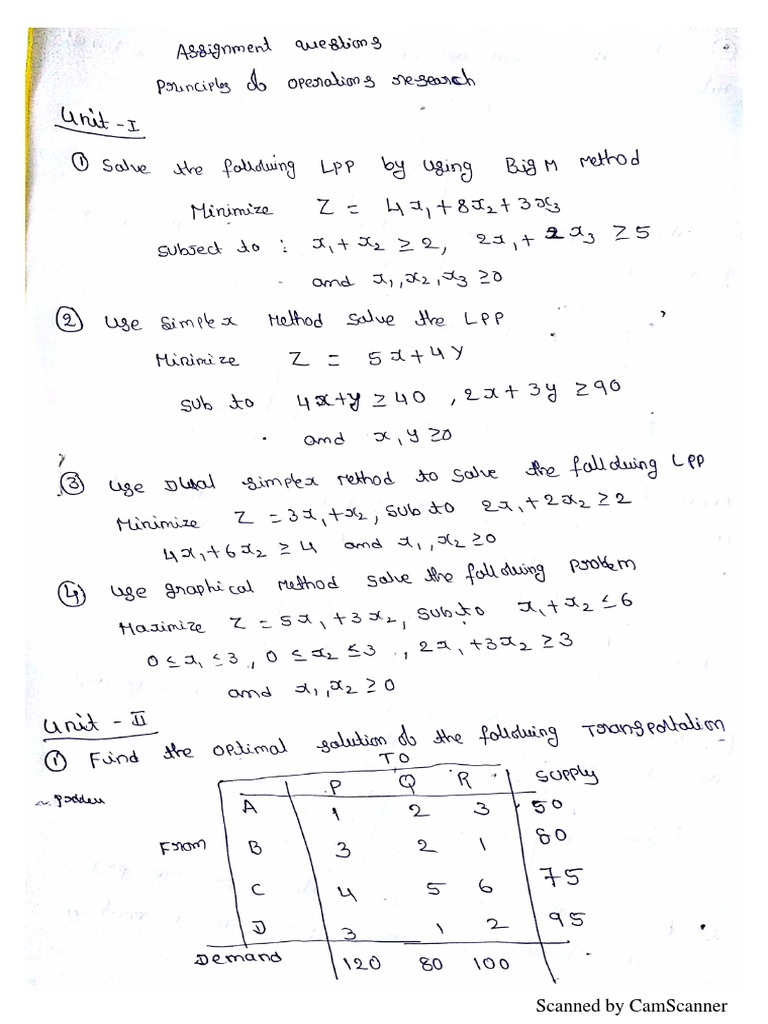 Assignment questions
Principles of operations research
Unit - I
① Solve the following LPP by using Big M method
Minimize Z = 4x₁ + 8x₂ + 3x₃
subject to : x₁ + x₂ ≥ 2, 2x₁ + 2x₃ ≥ 5
and x₁, x₂, x₃ ≥ 0
② Use simplex method solve the LPP
Minimize Z = 5x + 4y
sub to 4x + y ≥ 40 , 2x + 3y ≥ 90
and x, y ≥ 0
③ Use Dual simplex method to solve the following LPP
Minimize Z = 3x₁ + x₂, sub to 2x₁ + 2x₂ ≥ 2
4x₁ + 6x₂ ≥ 4 and x₁, x₂ ≥ 0
④ Use graphical method solve the following problem
Maximize Z = 5x₁ + 3x₂, sub to x₁ + x₂ ≤ 6
0 ≤ x₁ ≤ 3, 0 ≤ x₂ ≤ 3, 2x₁ + 3x₂ ≥ 3
and x₁, x₂ ≥ 0
Unit - II
① Find the optimal solution of the following Transportation
TO
P Q R Supply
A 1 2 3 50
From B 3 2 1 80
C 4 5 6 75
D 3 1 2 95
Demand 120 80 100
Scanned by CamScanner